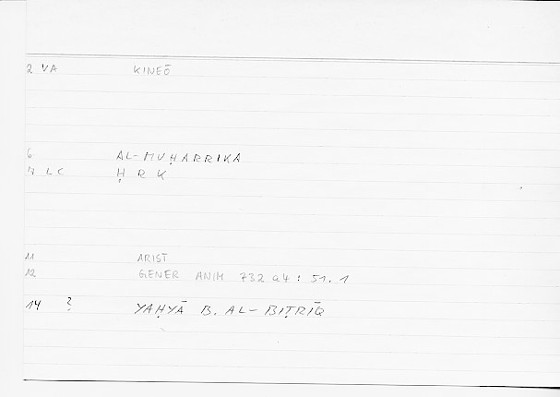 2 VA KINEŌ
6 AL-MUḤARRIKA
7 LC Ḥ R K
11 ARIST
12 GENER ANIM 732 a4 : 51.1
14 ? YAḤYĀ B. AL-BIṬRĪQ